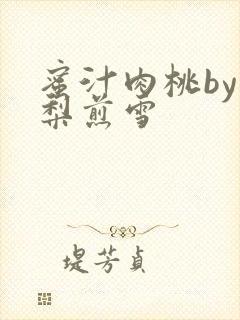 蜜汁肉桃by
梨煎雪
堤芳貞